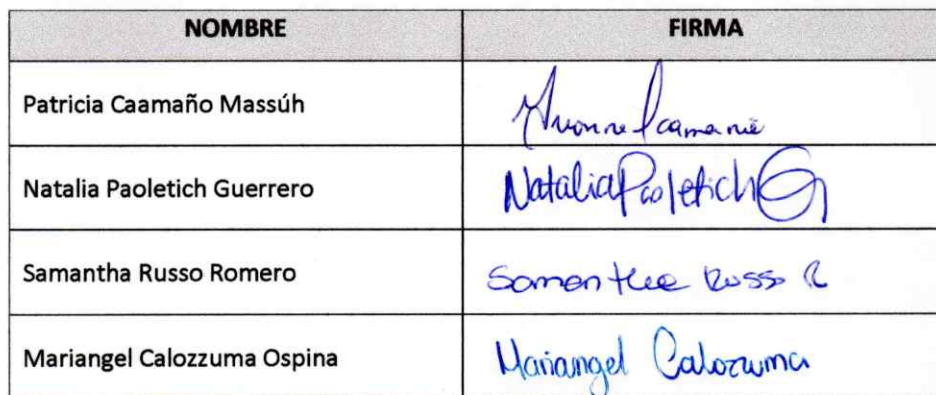 NOMBRE FIRMA
Patricia Caamaño Massúh
Natalia Paoletich Guerrero Natalia Paoletich G
Samantha Russo Romero Samantha Russo R
Mariangel Calozzuma Ospina Mariangel Calozzuma